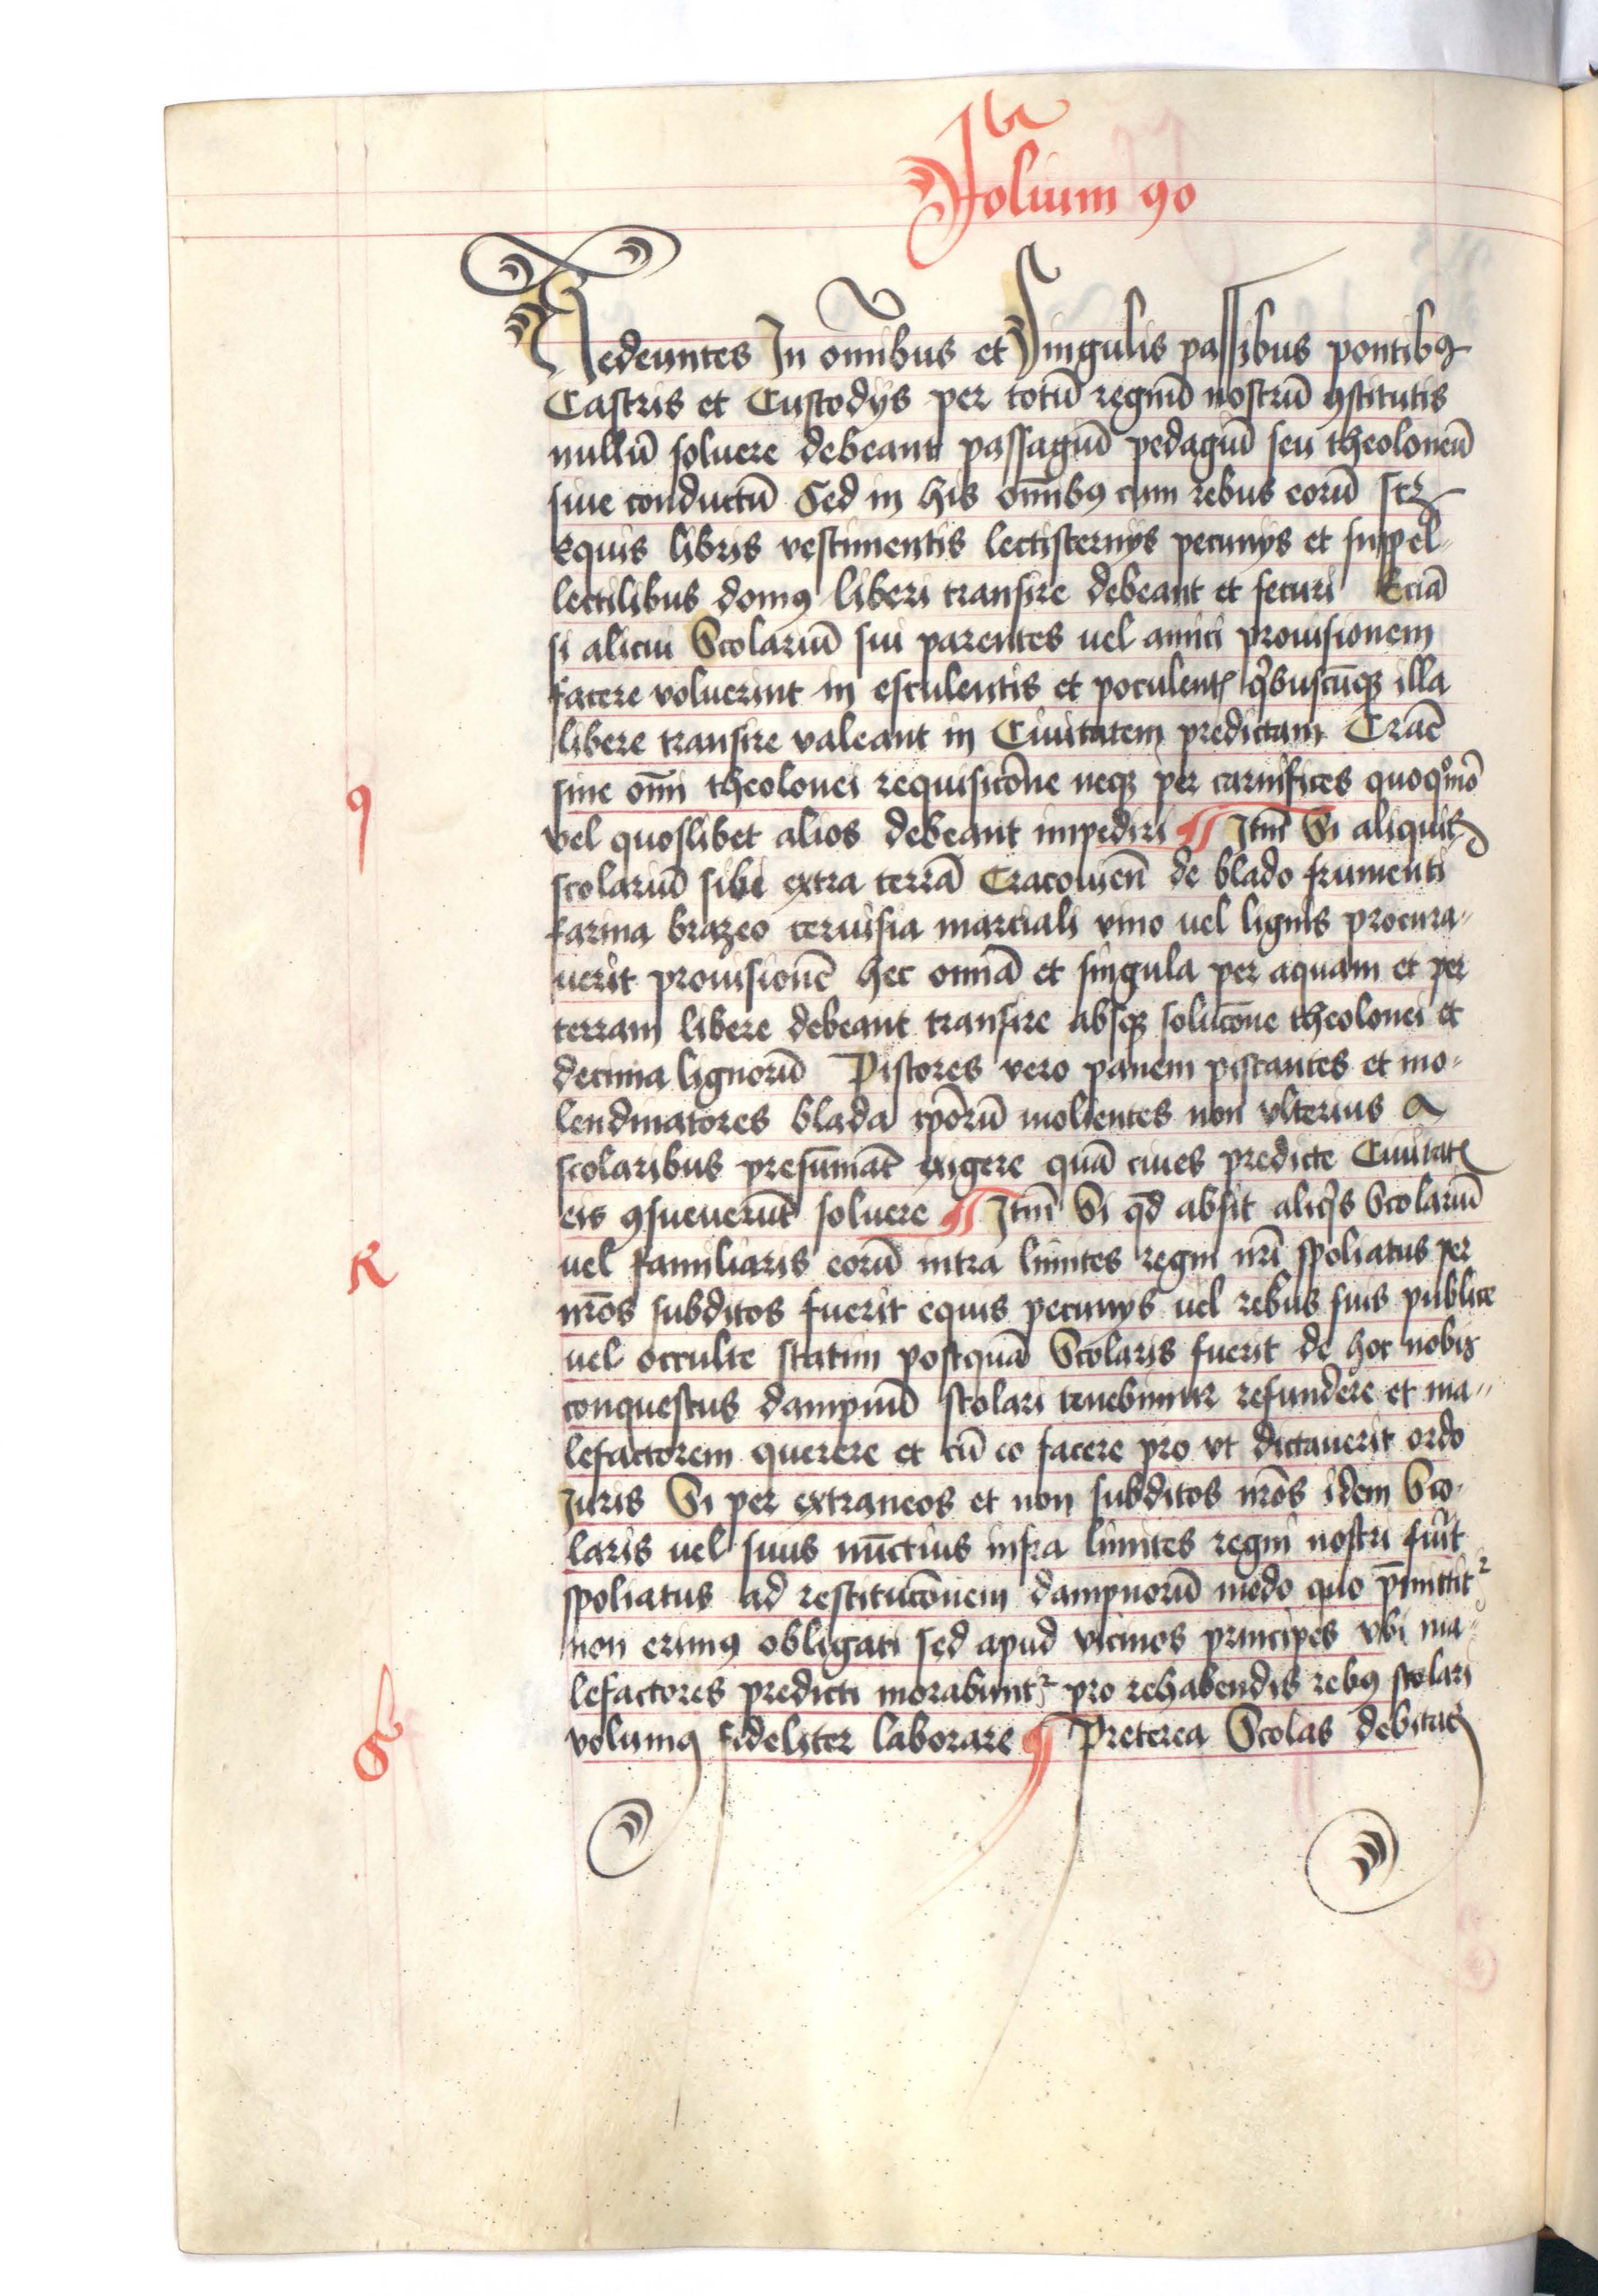 folium 90
Redeuntes In omnibus et Singulis passibus pontibꝯ
Castris et Custodys per totū regnū nostrū ꝯstitutis
nullū soluere debeant passagiū pedagiū seu theoloneū
siue conductū Sed in his om̄ibꝯ cum rebus eorū scz
Equis libris vestimentis lectisternys pecunys et suppel
lectilibus domꝯ liberi transire debeant et securi Eciā
si alicui Scolariū sui parentes uel amici prouisionem
facere voluerint in esculentis et poculentꝭ qͥbuscūqꝫ illa
libere transire valeant in Ciuitatem predictam Cracē
sine om̄i theolonei requisicōne neqꝫ per carnifices quoqͦmō
vel quoslibet alios debeant impediri ¶ Itm̄ Si aliquis
scolariū sibi extra terrā Cracouien̄ de blado frumenti
farina brazeo ceruisia marciali vino uel lignis procura〃
uerit prouisionē hec omnia et singula per aquam et per
terram libere debeant transire absqꝫ solucōne theolonei et
decima lignorū Pistores vero panem pistantes et mo〃
lendinatores blada ipōrū molientes non vlterius a
scolaribus presumāt exigere quā ciues predicte Ciuitatꝭ
eis ꝯsueuerūt soluere ¶ Itm̄ Si qd̄ absit aliqͥs Scolariū
uel familiaris eorū intra limites regni nrī spoliatus per
nrōs subditos fuerit equis pecunys uel rebus suis publice
uel occulte statim postquā Scolaris fuerit de hoc nobis
conquestus dampnū scolari tenebimur refundere et ma〃
lefactorem querere et cū eo facere pro vt dictauerit ordo
Iuris Si per extraneos et non subditos nrōs idem Sco〃
laris uel suus nūctius infra limites regni nostri fuīt
spoliatus ad restitucōnem dampnorū modo quo p̄mittitᷣ
non erimꝯ obligati sed apud vicinos principes vbi ma〃
lefactores predicti morabuntᷣ pro rehabendis rebꝯ scolari
volumꝯ fideliter laborare ¶ Preterea Scolas debitatꝭ
q
R
S